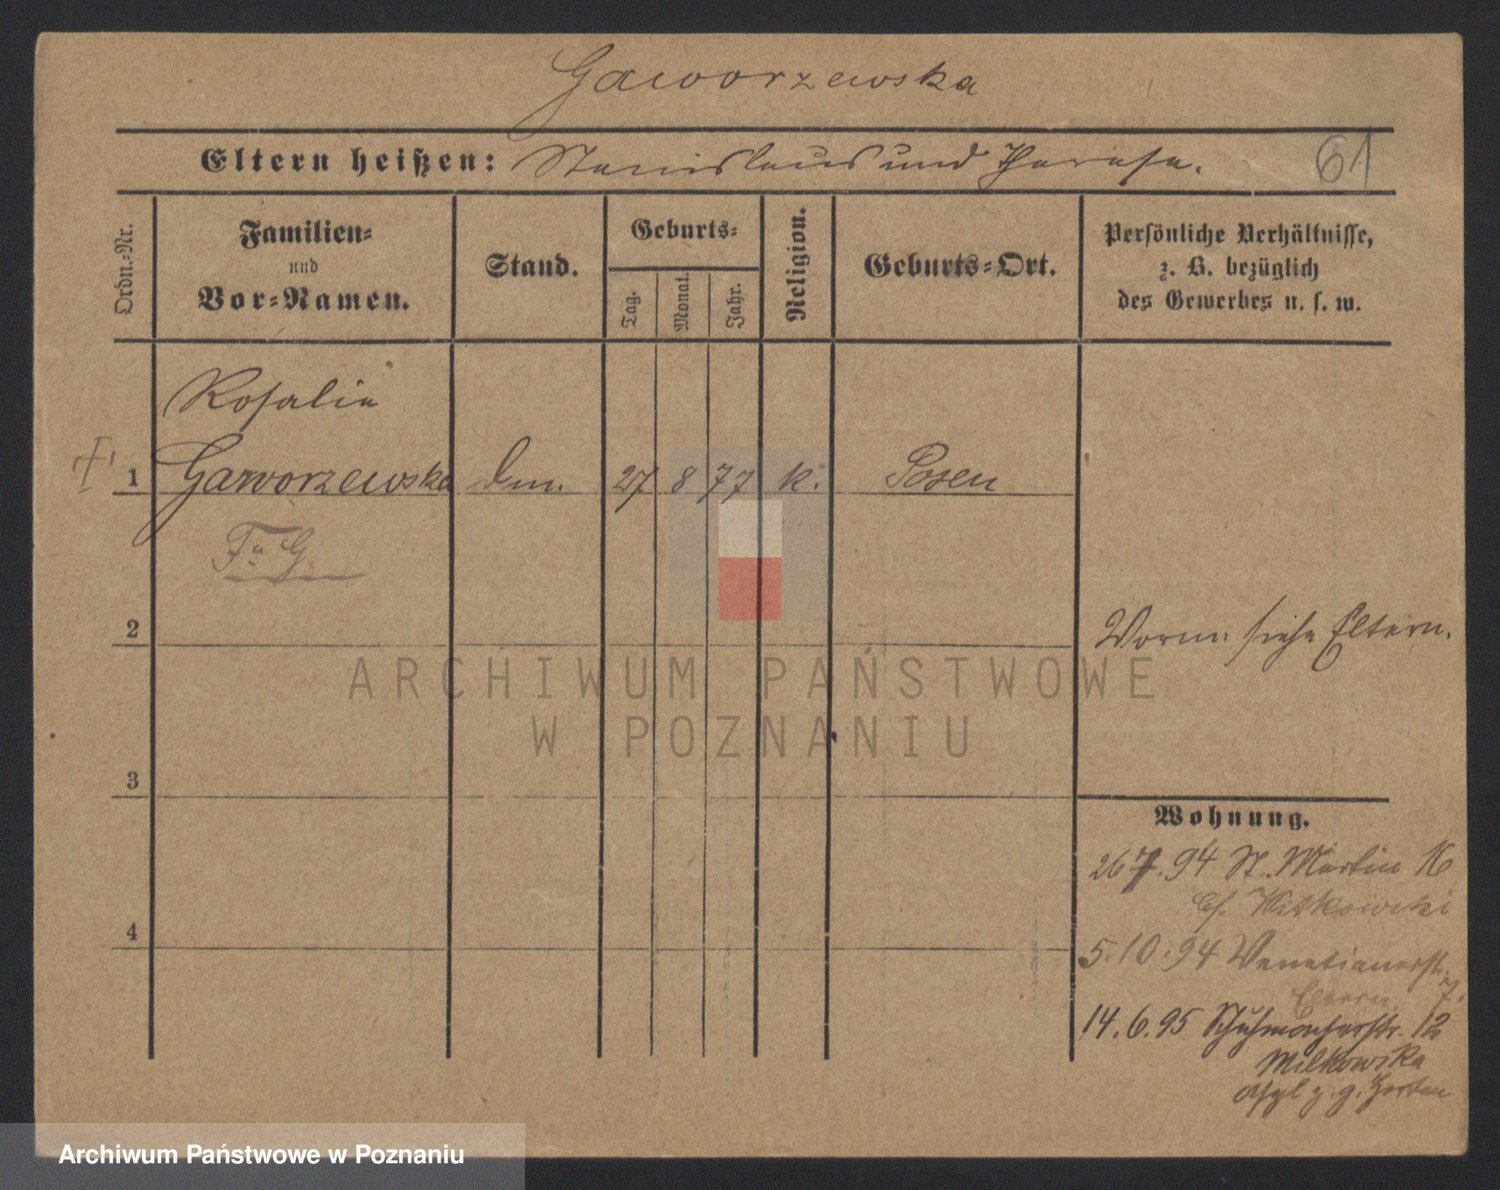 Gaworzewska
Eltern heißen: Stanislaus und Therese.
61
Ordn.-Nr.
Familien-
und
Vor-Namen.
Stand.
Geburts-
Tag.
Monat.
Jahr.
Religion.
Geburts-Ort.
Persönliche Verhältnisse,
z. B. bezüglich
des Gewerbes u. s. w.
Rosalie
1 Gaworzewska 27 8 77 k. Posen
F. G.
2
Vorm: siehe Eltern.
ARCHIWUM PAŃSTWOWE
W POZNANIU
3
Wohnung.
26 7. 94 St. Martin 16
Witkowski
4
5. 10. 94 Venetianerstr. 7.
Eltern
14. 6. 95 Schuhmacherstr. 12
Milkowska
z. g.
Archiwum Państwowe w Poznaniu